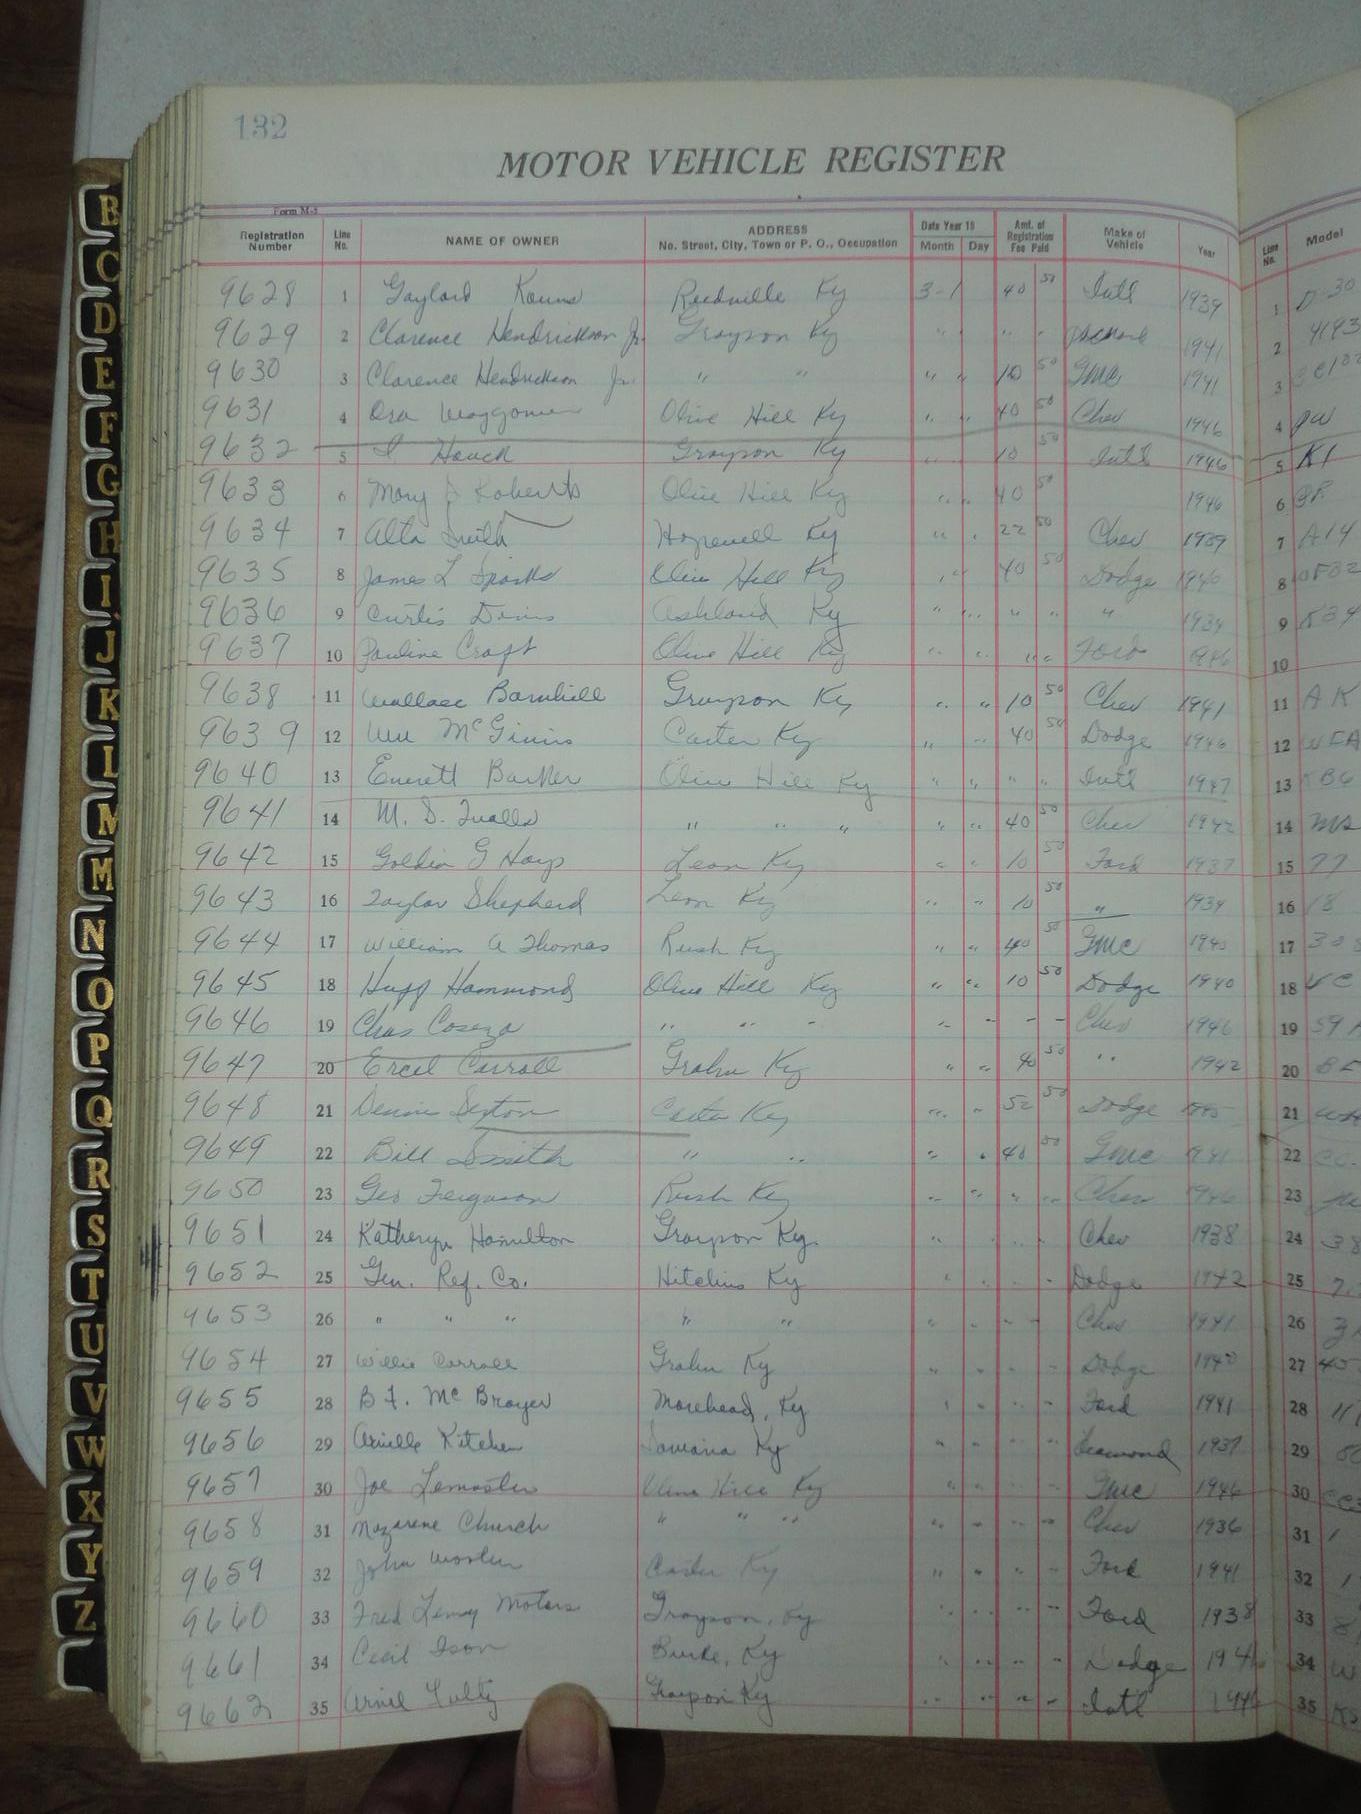 132
MOTOR VEHICLE REGISTER
Form M-5
Registration Number Line No. NAME OF OWNER ADDRESS No. Street, City, Town or P. O., Occupation Date Year 19 Month Day Amt. of Registration Fee Paid Make of Vehicle Year Line No. Model
9628 1 Gaylord Kouns Ky 3-1 40 50 Int'l 1939 1 D-30
9629 2 Clarence Hendrickson Jr. Grayson Ky " " " 1941 2 4193
9630 3 Clarence Hendrickson Jr. " " " " 10 50 GMC 1941 3
9631 4 Ora Waggoner Olive Hill Ky " " 40 50 Chev 1946 4
9632 5 Houck Grayson Ky " " 10 50 Int'l 1946 5 K1
9633 6 Mary J Roberts Olive Hill Ky " " 40 50 1946 6
9634 7 Alta Smith Hopewell Ky " " 22 50 Chev 1939 7 A14
9635 8 James L Sparks Olive Hill Ky " " 40 50 Dodge 1940 8
9636 9 Curtis Davis Ashland Ky " " " " " 1939 9
9637 10 Pauline Craft Olive Hill Ky " " " " Ford 1946 10
9638 11 Wallace Barnhill Grayson Ky " " 10 50 Chev 1941 11 AK
9639 12 Wm McGinnis Carter Ky " " 40 50 Dodge 1946 12 WFA
9640 13 Everett Barker Olive Hill Ky " " " " Int'l 1947 13 KB6
9641 14 M. D. Qualls " " " " " 40 50 Chev 1942 14 MS
9642 15 Goldia G Hays Leon Ky " " 10 50 Ford 1937 15 77
9643 16 Taylor Shepherd Leon Ky " " 10 50 " 1939 16 18
9644 17 William A Thomas Rush Ky " " 40 50 GMC 1940 17
9645 18 Hugg Hammond Olive Hill Ky " " 10 50 Dodge 1940 18 VC
9646 19 Chas " " " " " " " Chev 1946 19 59
9647 20 Ercel Carroll Grahn Ky " " 40 50 " 1942 20
9648 21 Sexton Carter Ky " " 52 50 Dodge 21
9649 22 Bill Smith " " " " 40 50 GMC 1941 22 CC
9650 23 Geo Ferguson Rush Ky " " " " Chev 1946 23
9651 24 Katheryn Hamilton Grayson Ky. " " " Chev 1938 24 38
9652 25 Gen. Ref. Co. Hitchins Ky " " " Dodge 1942 25
9653 26 " " " " " " " " " Chev 1941 26
9654 27 Willie Carroll Grahn Ky " " " " Dodge 1940 27
9655 28 B F. McBrayer Morehead, Ky " " " " Ford 1941 28 11
9656 29 Kitchen Ky " " " " Diamond 1937 29
9657 30 Joe Lemaster Olive Hill Ky " " " " GMC 1946 30
9658 31 Nazarene Church " " " " " " " Chev 1936 31 1
9659 32 John Worten Carter Ky " " " " Ford 1941 32 1
9660 33 Fred Motors Grayson, Ky " " " " Ford 1938 33
9661 34 Cecil Ison Burke, Ky " " " " Dodge 34 W
9662 35 Fultz Grayson Ky " " " " Int'l 35
B
C
D
E
F
G
H
I
J
K
L
M
M
N
O
P
Q
R
S
T
U
V
W
X
Y
Z